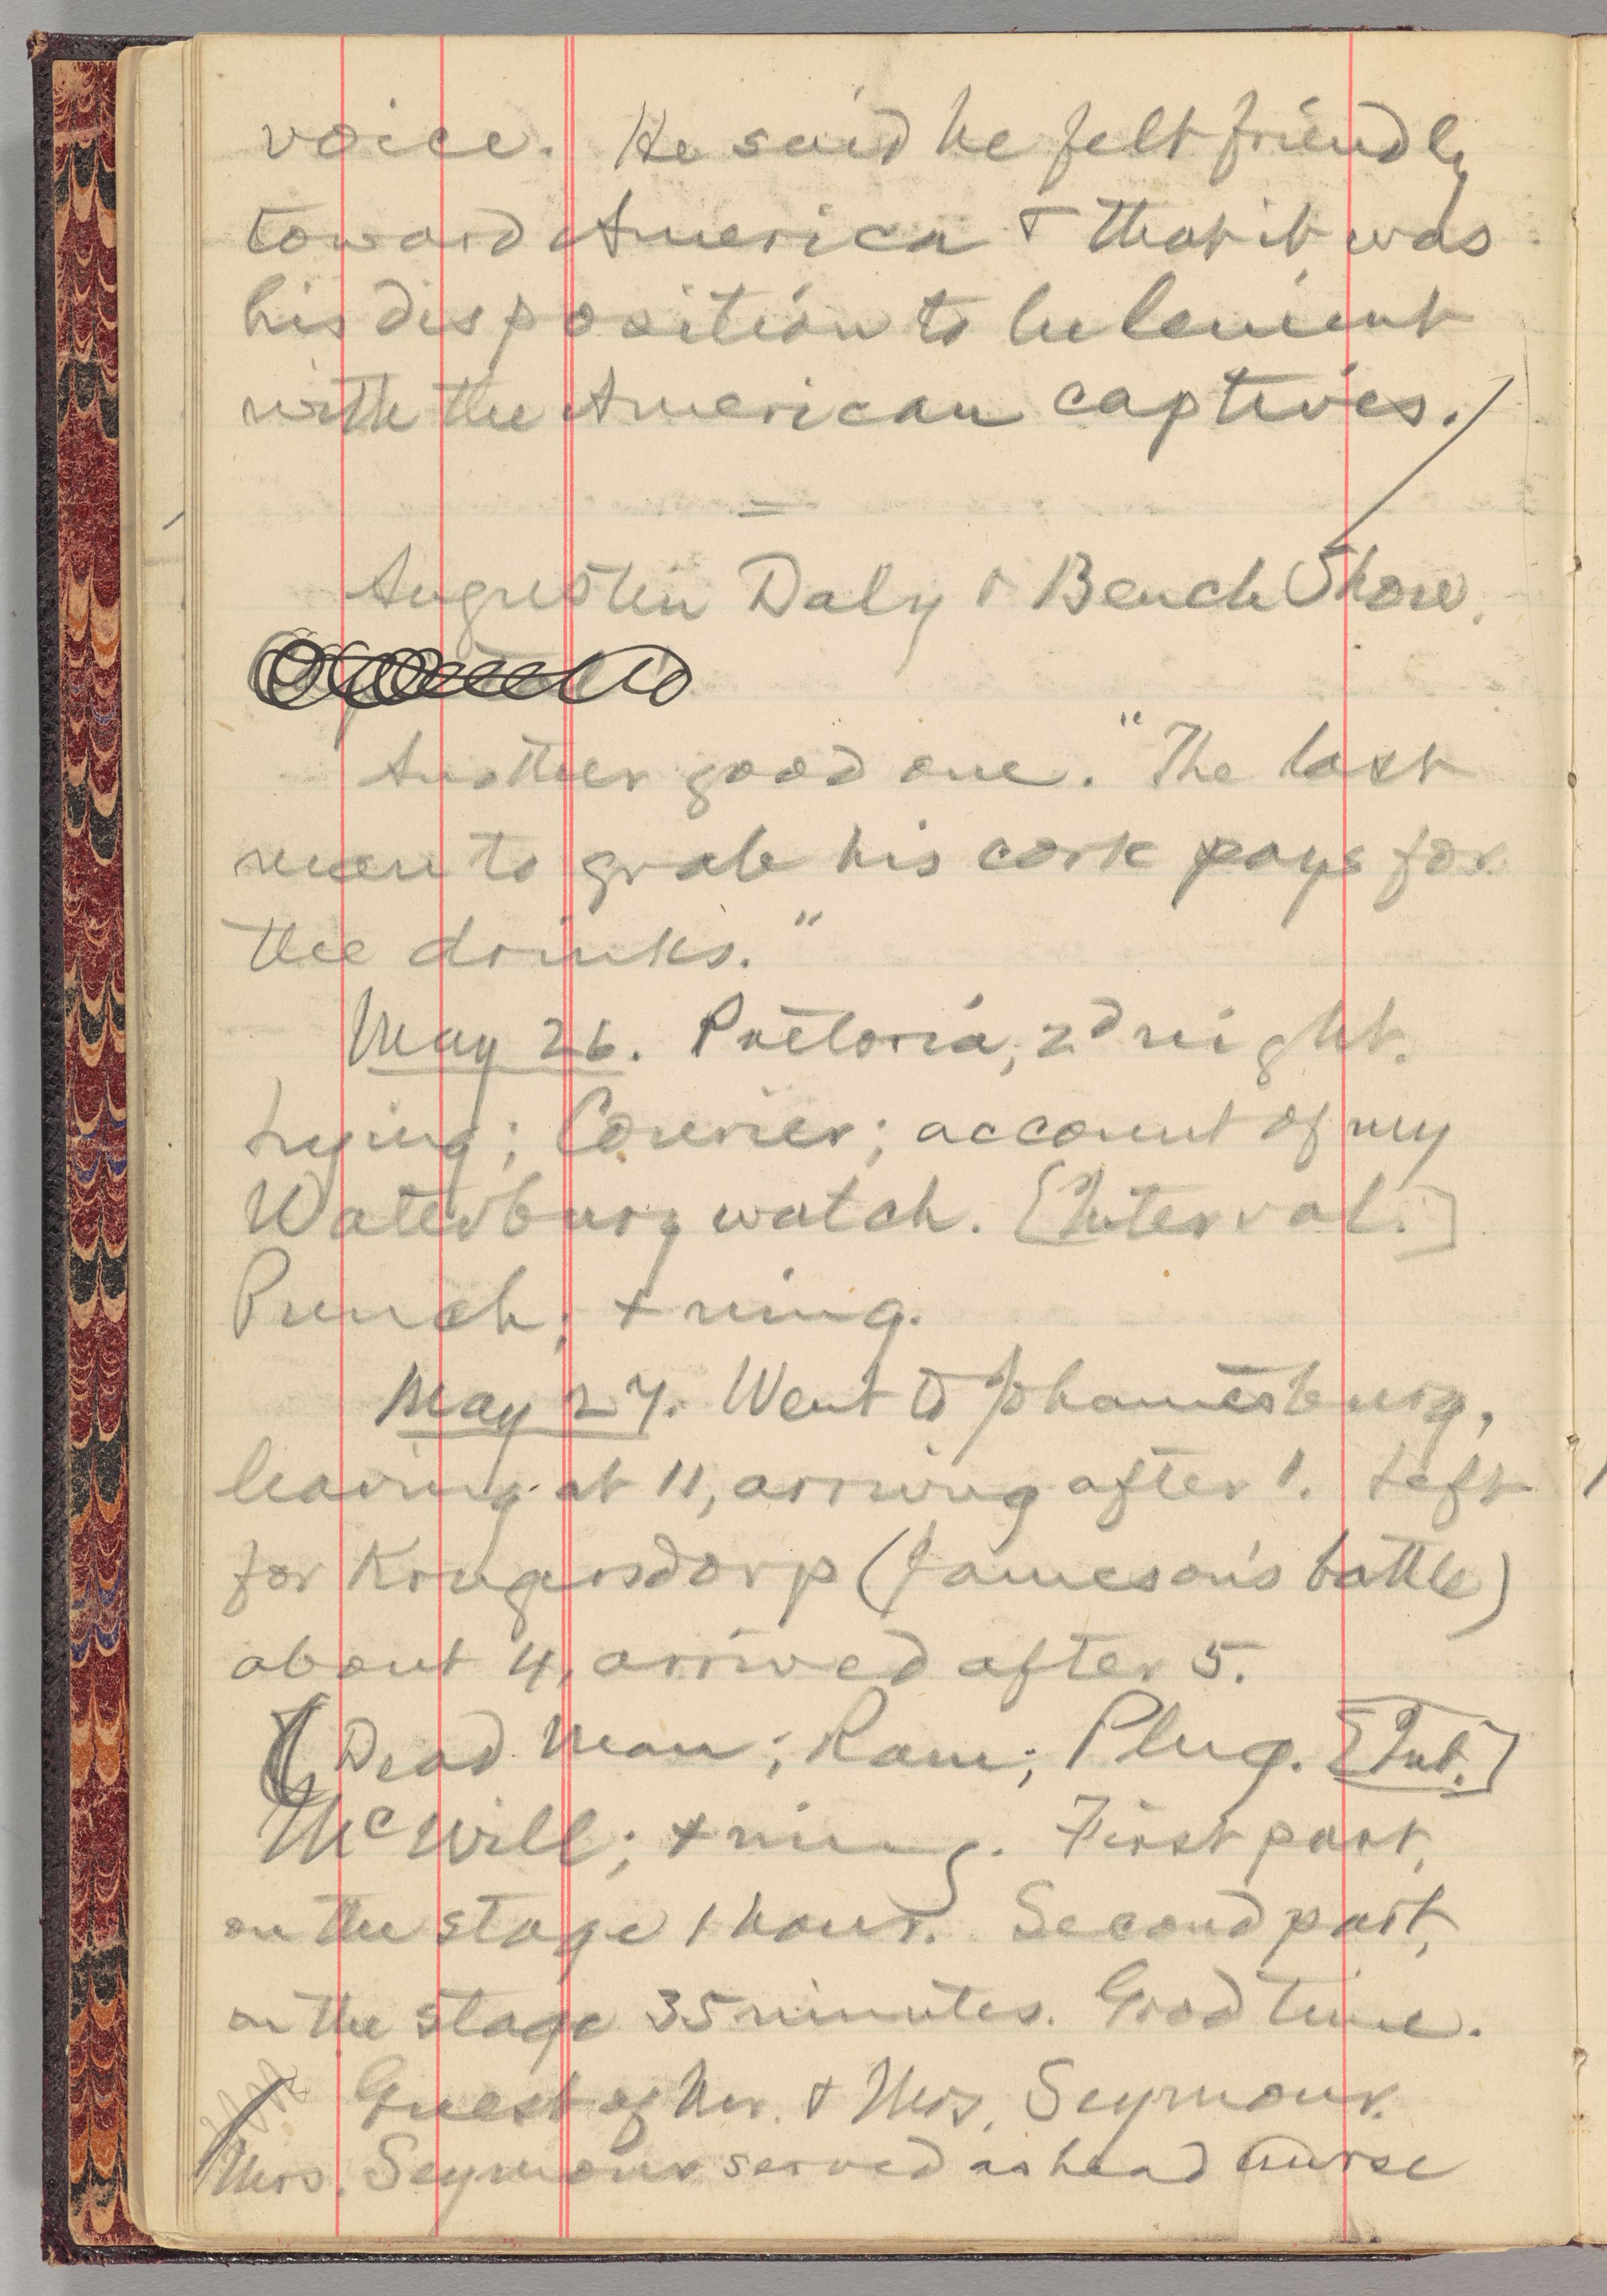 voice. He said he felt friendly
toward America & that it was
his disposition to be lenient
with the American captives.
=
Augustin Daly & Bench Show.
Another good one. "The last
man to grab his cork pays for
the drinks."
May 26. Pretoria, 2d night.
Lying; Courier; account of my
Waterbury watch. [Interval.]
Punch; + ning.
May 27. Went to Johannesburg,
leaving at 11, arriving after 1. Left
for Krugersdorp (Jameson's battle)
about 4, arrived after 5.
Dead Man; Ram; Plug. [Int.]
McWill; + ning. First part,
on the stage 1 hour. Second part,
on the stage 35 minutes. Good time.
Guest of Mr. & Mrs. Seymour.
Mrs. Seymour served as head nurse